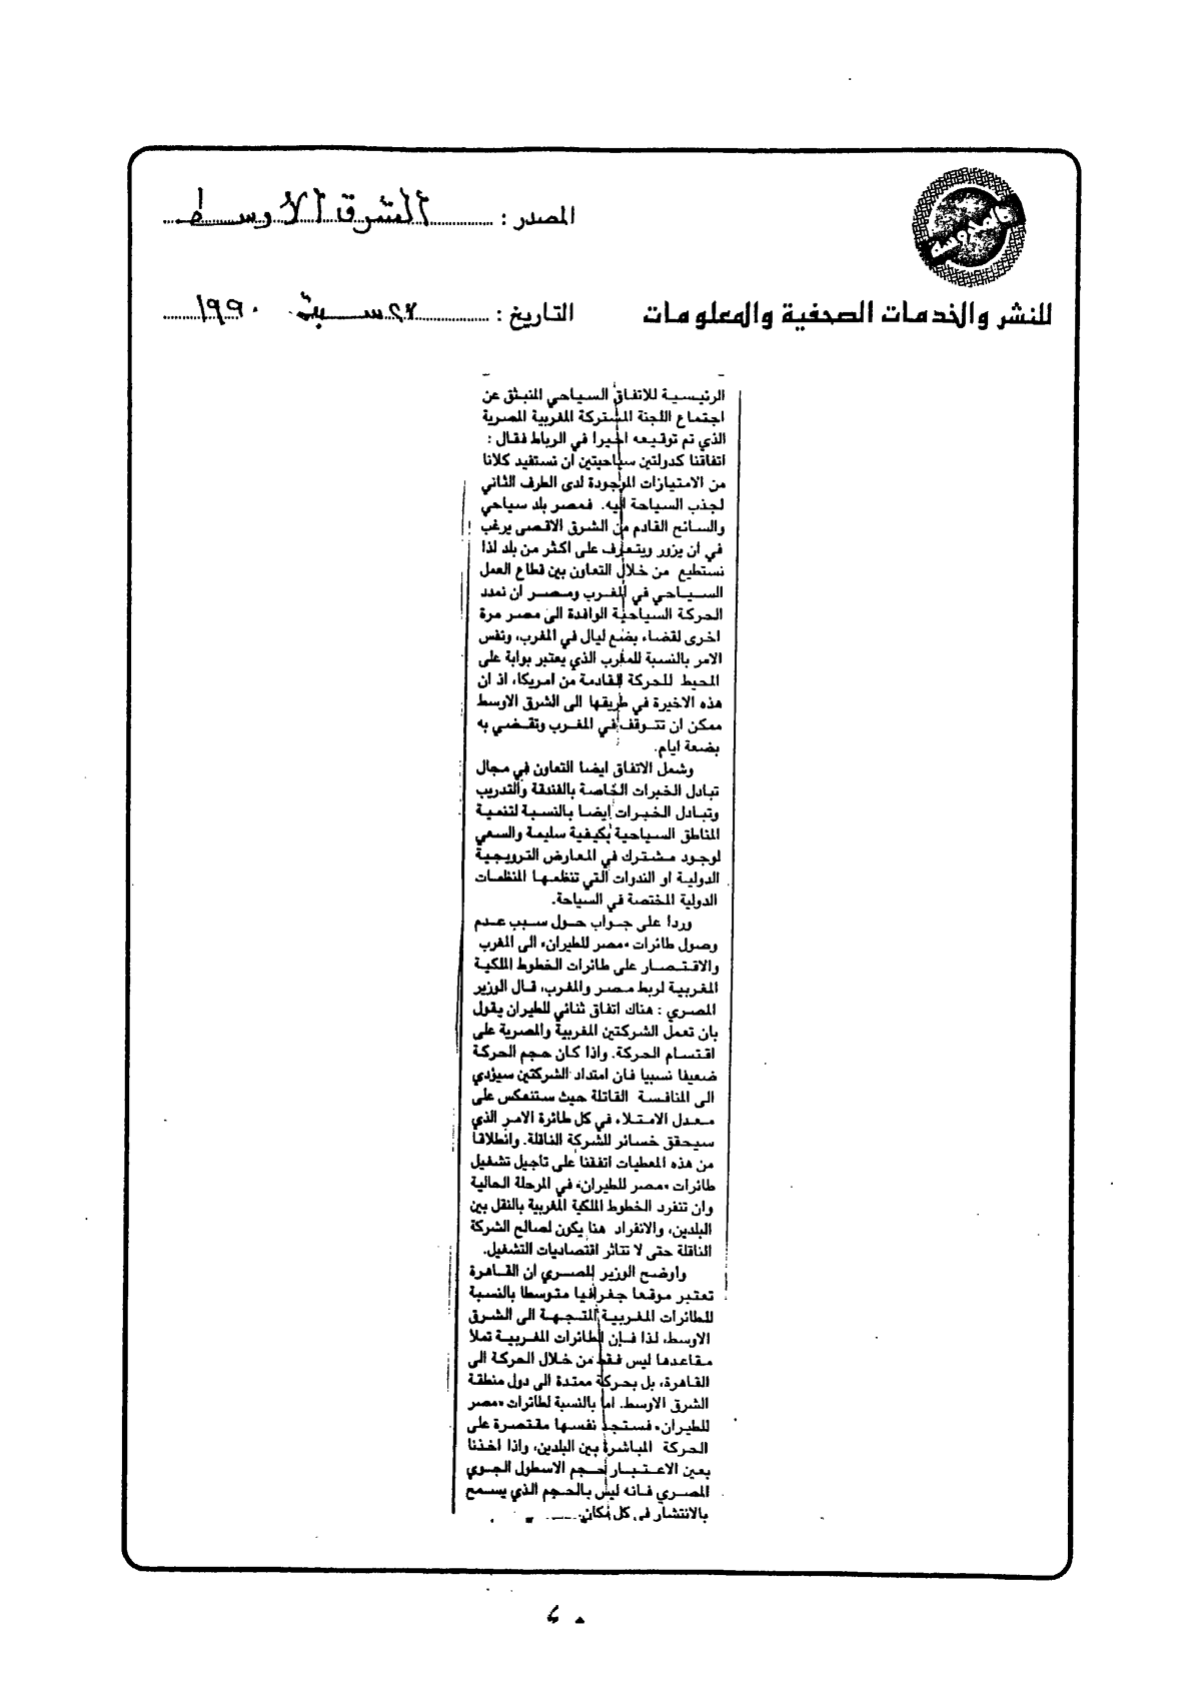 المصدر : الشرق الأوسط
للنشر والخدمات الصحفية والمعلومات
التاريخ : ٢٧ سبتـ ١٩٩٠
الرئيسية للاتفاق السياحي المنبثق عن
اجتماع اللجنة المشتركة المغربية المصرية
الذي تم توقيعه اخيرا في الرباط فقال :
اتفاقنا كدولتين سياحيتين ان تستفيد كلانا
من الامتيازات الموجودة لدى الطرف الثاني
لجذب السياحة اليه. فمصر بلد سياحي
والسائح القادم من الشرق الاقصى يرغب
في ان يزور ويتعرف على اكثر من بلد لذا
نستطيع من خلال التعاون بين قطاع العمل
السياحي في المغرب ومصر ان نمدد
الحركة السياحية الوافدة الى مصر مرة
اخرى لقضاء بضع ليال في المغرب، ونفس
الامر بالنسبة للمغرب الذي يعتبر بوابة على
المحيط للحركة القادمة من امريكا، اذ ان
هذه الاخيرة في طريقها الى الشرق الاوسط
ممكن ان تتوقف في المغرب وتقضي به
بضعة ايام.
وشمل الاتفاق ايضا التعاون في مجال
تبادل الخبرات الخاصة بالفندقة والتدريب
وتبادل الخبرات ايضا بالنسبة لتنمية
المناطق السياحية بكيفية سليمة والسعي
لوجود مشترك في المعارض الترويجية
الدولية او الندوات التي تنظمها المنظمات
الدولية المختصة في السياحة.
وردا على جواب حول سبب عدم
وصول طائرات «مصر للطيران» الى المغرب
والاقتصار على طائرات الخطوط الملكية
المغربية لربط مصر والمغرب، قال الوزير
المصري : هناك اتفاق ثنائي للطيران يقول
بان تعمل الشركتين المغربية والمصرية على
اقتسام الحركة. واذا كان حجم الحركة
ضعيفا نسبيا فان امتداد الشركتين سيؤدي
الى المنافسة القاتلة حيث ستنعكس على
معدل الامتلاء في كل طائرة الامر الذي
سيحقق خسائر للشركة الناقلة. وانطلاقا
من هذه المعطيات اتفقنا على تاجيل تشغيل
طائرات «مصر للطيران» في المرحلة الحالية
وان تنفرد الخطوط الملكية المغربية بالنقل بين
البلدين، والانفراد هنا يكون لصالح الشركة
الناقلة حتى لا تتاثر اقتصاديات التشغيل.
واوضح الوزير المصري ان القاهرة
تعتبر موقعا جغرافيا متوسطا بالنسبة
للطائرات المغربية المتجهة الى الشرق
الاوسط، لذا فإن الطائرات المغربية تملأ
مقاعدها ليس فقط من خلال الحركة الى
القاهرة، بل بحركة ممتدة الى دول منطقة
الشرق الاوسط. اما بالنسبة لطائرات «مصر
للطيران» فستجد نفسها مقتصرة على
الحركة المباشرة بين البلدين، واذا اخذنا
بعين الاعتبار حجم الاسطول الجوي
المصري فانه ليس بالحجم الذي يسمح
بالانتشار في كل مكان.